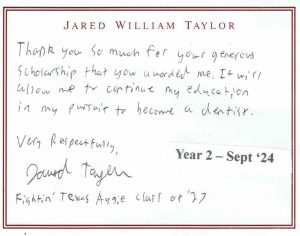 JARED WILLIAM TAYLOR
Thank you so much for your generous
scholarship that you awarded me. It will
allow me to continue my education
in my pursuit to become a dentist.
Very Respectfully,
Year 2 – Sept '24
Jared Taylor
Fightin' Texas Aggie Class of '27